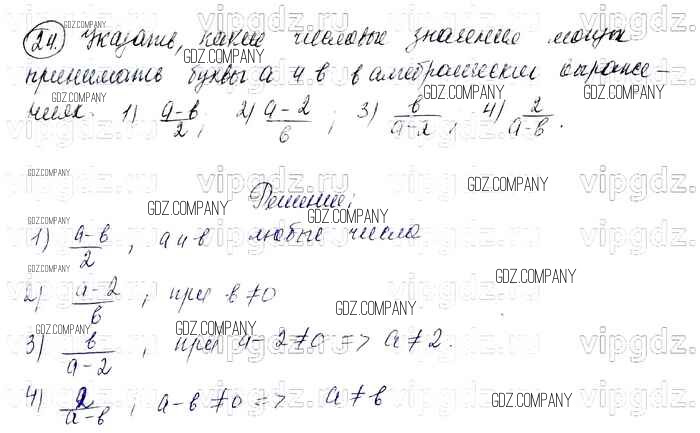 24. Указать, какие числовые значение могут
принимать буквы а и в в алгебраических выраже-
ниях. 1) (а-в)/2; 2) (а-2)/в; 3) в/(а-2), 4) 2/(а-в).
Решение:
1) (а-в)/2, а и в любые числа
2) (а-2)/в; при в≠0
3) в/(а-2), при а-2≠0 => а≠2.
4) 2/(а-в); а-в≠0 => а≠в
GDZ.COMPANY
vipgdz.